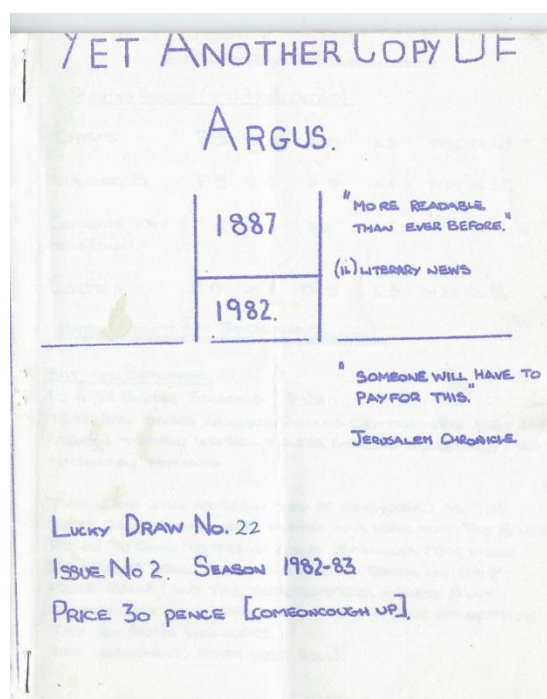 YET ANOTHER COPY OF
ARGUS.
1887
1982.
"MORE READABLE
THAN EVER BEFORE."
(ii) LITERARY NEWS
"SOMEONE WILL HAVE TO
PAY FOR THIS."
JERUSALEM CHRONICLE
LUCKY DRAW NO. 22
ISSUE NO 2. SEASON 1982-83
PRICE 30 PENCE [COMEONCOUGH UP].